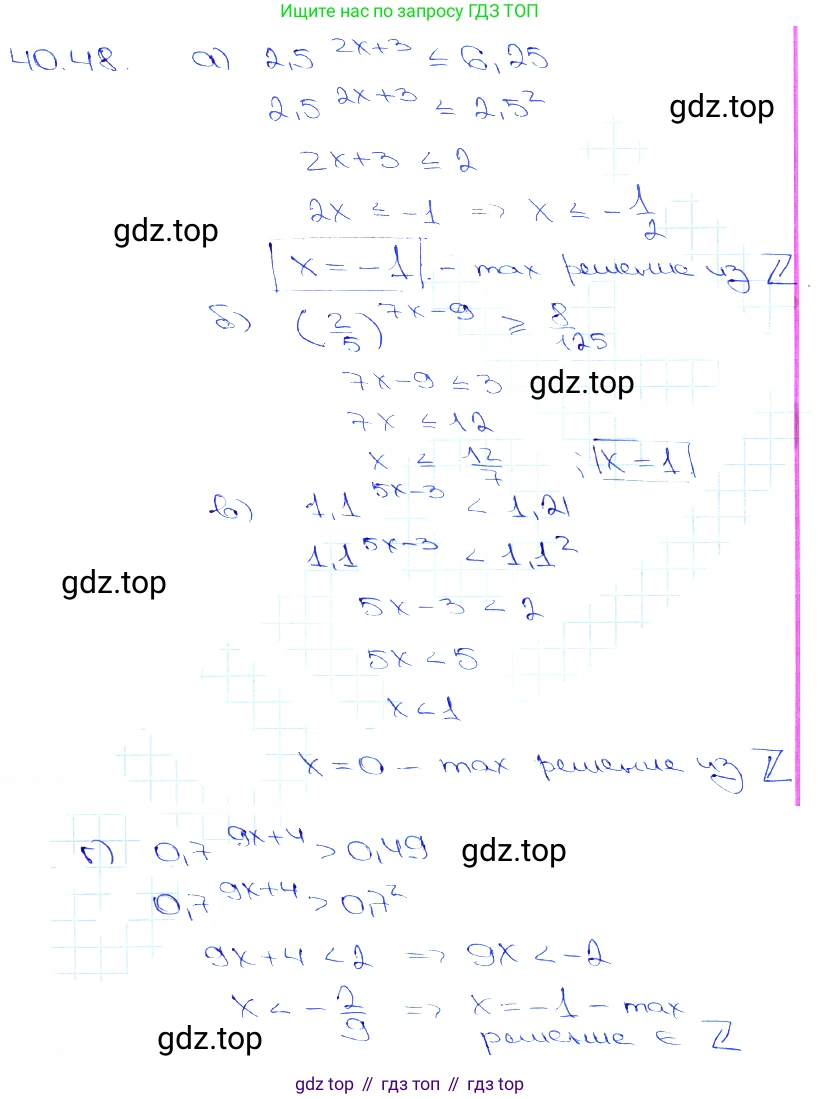 Ищите нас по запросу ГДЗ ТОП
40.48. а) 2,5^(2x+3) ≤ 6,25
2,5^(2x+3) ≤ 2,5²
gdz.top
2x+3 ≤ 2
2x ≤ -1 => x ≤ -1/2
gdz.top
x = -1. - max решение из Z.
б) (2/5)^(7x-9) ≥ 8/125
7x-9 ≤ 3
gdz.top
7x ≤ 12
x ≤ 12/7 ; x = 1
в) 1,1^(5x-3) < 1,21
1,1^(5x-3) < 1,1²
gdz.top
5x-3 < 2
5x < 5
x < 1
x = 0 - max решение из Z
г) 0,7^(9x+4) > 0,49
gdz.top
0,7^(9x+4) > 0,7²
9x+4 < 2 => 9x < -2
x < -2/9 => x = -1 - max
решение ∈ Z
gdz.top
gdz.top // гдз топ // gdz.top